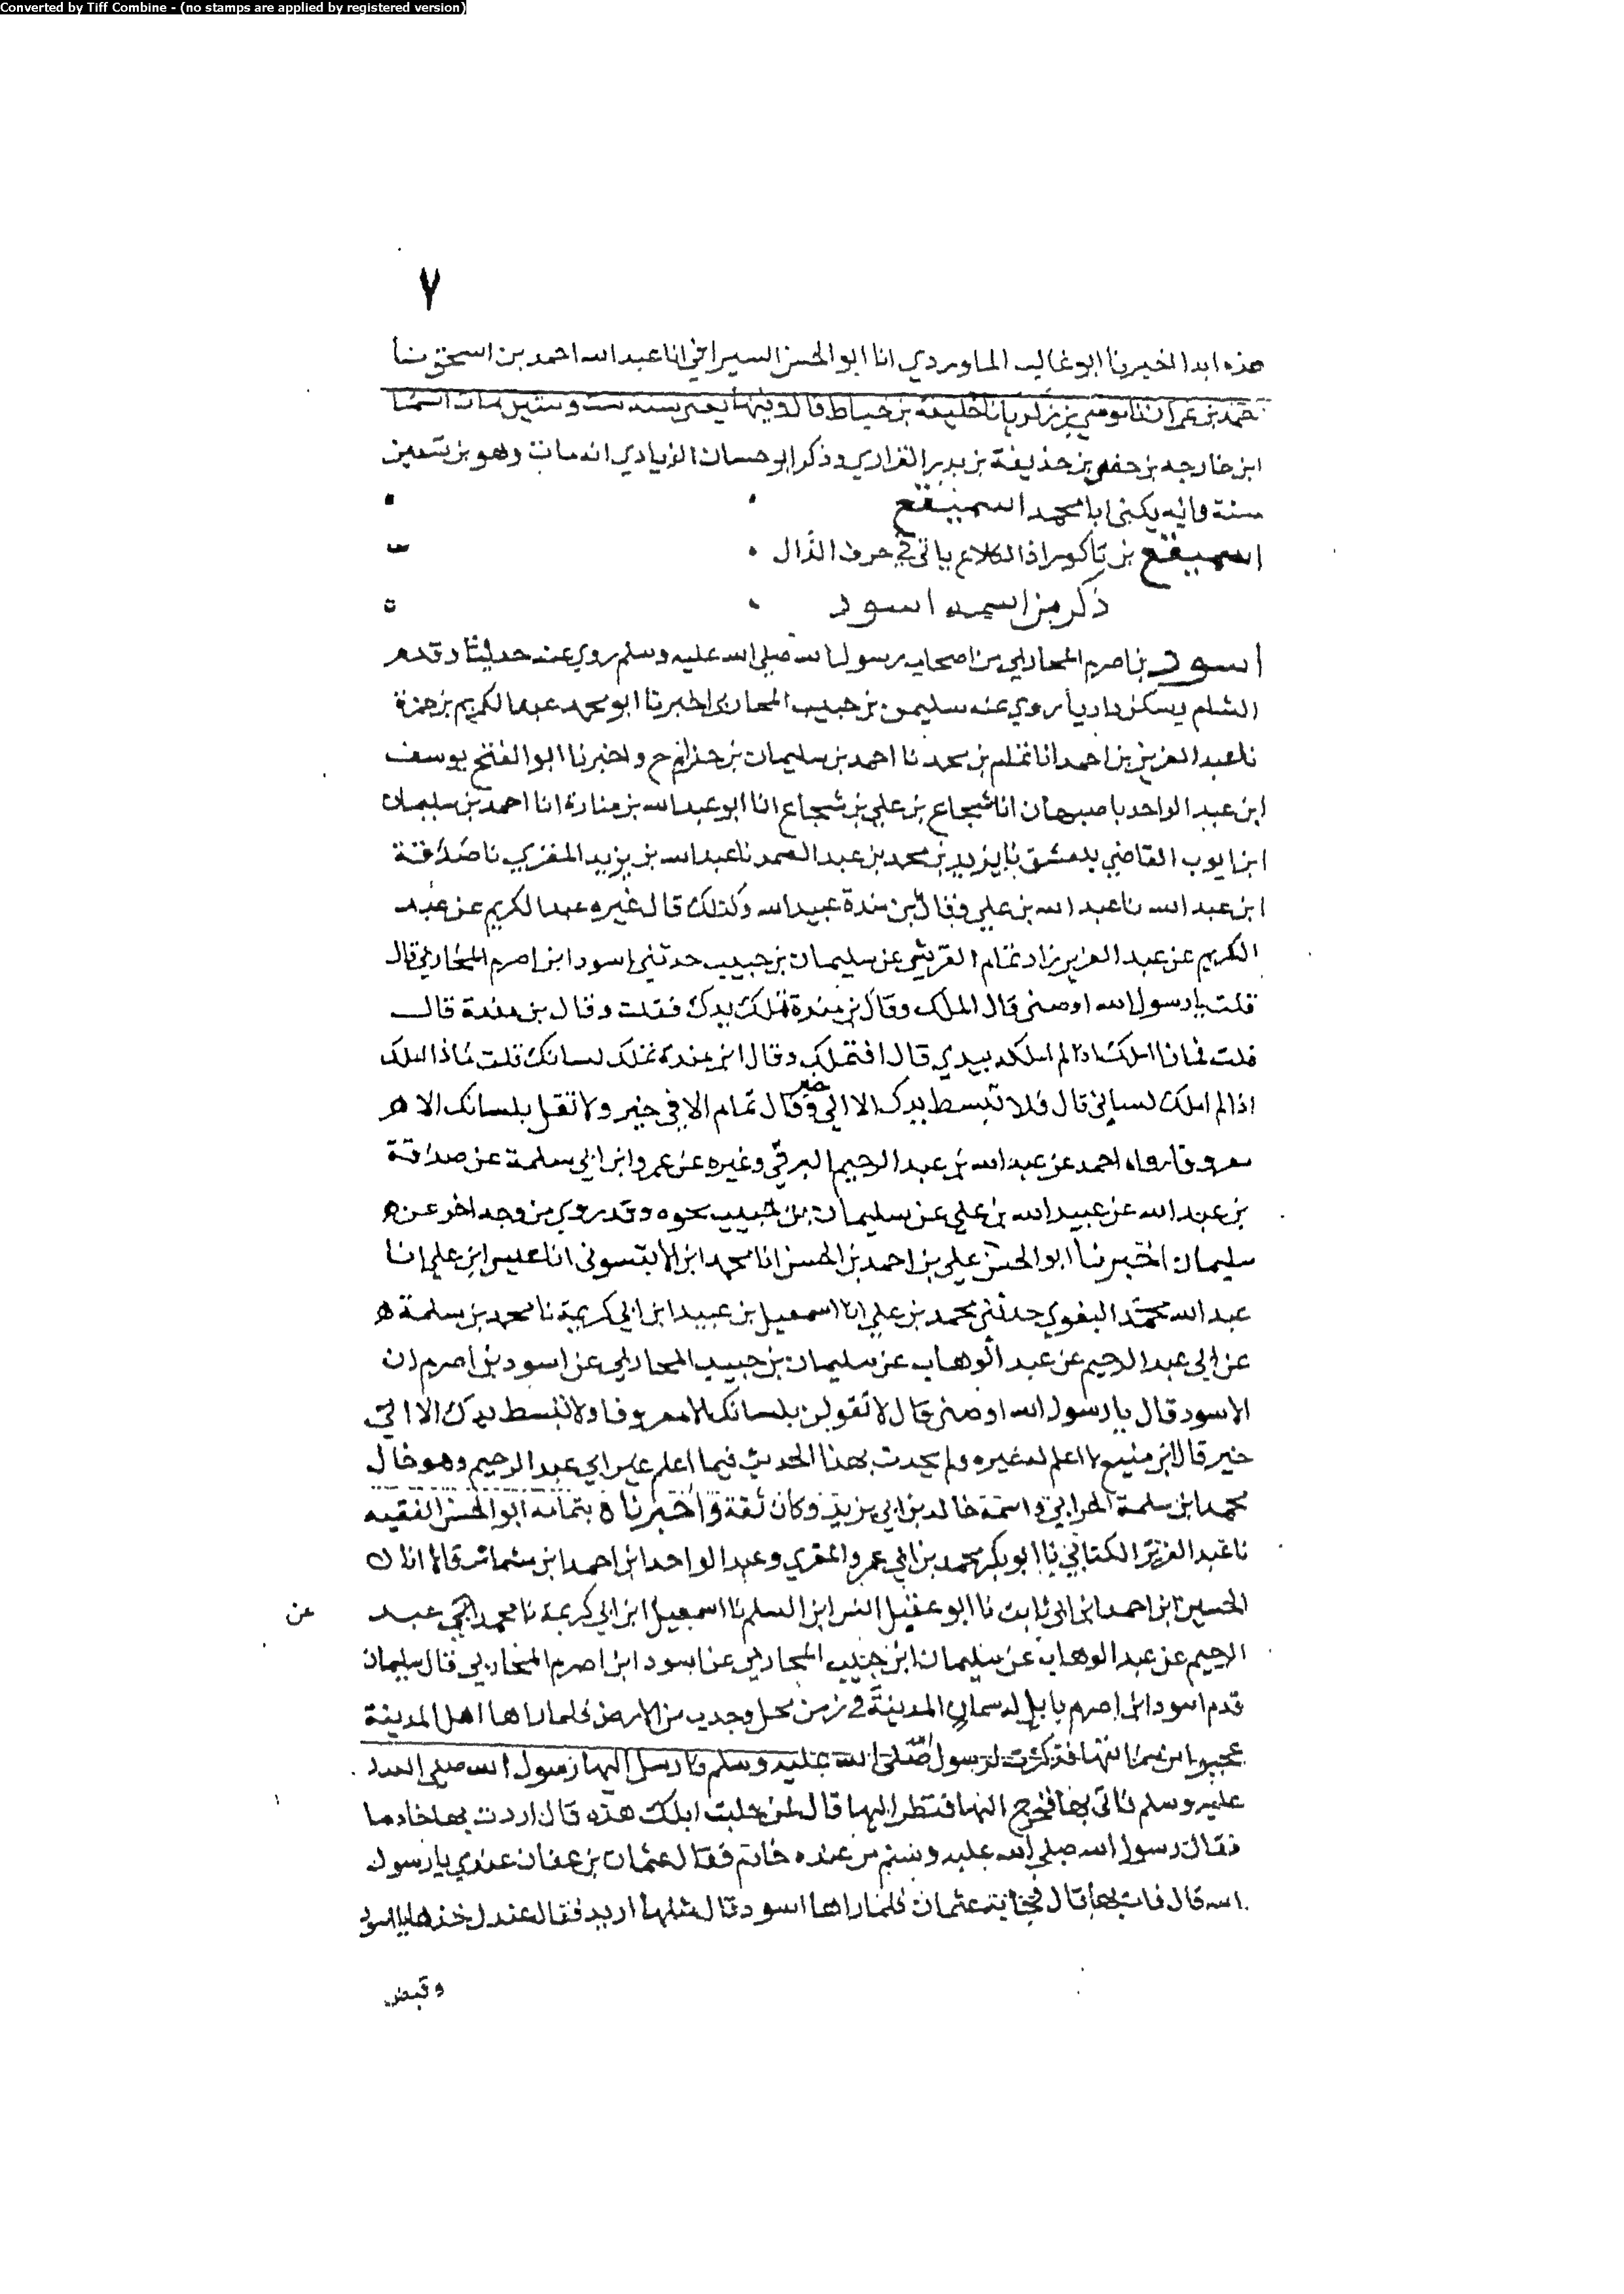 Converted by Tiff Combine - (no stamps are applied by registered version)
٧
هذه ابدا اخبرنا ابو غالب الماوردي انا ابو الحسن السيرافي انا عبد الله احمد بن اسحق نا
احمد بن عمران نا موسى بن زكريا نا خليفة بن خياط قال وفيها يعني سنة ست وستين مات اسما
ابن خارجه بن حفص بن حذيفة بن بدر الفزاري وذكر ابو حسان الزيادي انه مات وهو بن ستين
سنة وانه يكنى ابا محمد اسميفع
اسميفع بن باكورا ذا الكلاع ياتي في حرف الذال
ذكر من اسمه اسود
اسود بن اصرم المحاربي من اصحاب رسول الله صلى الله عليه وسلم روي عنه حديثا وقدم
الشام يسكن داريا روي عنه سليمن بن حبيب المحاربي اخبرنا ابو محمد عبد الكريم بن حمزة
نا عبد العزيز بن احمد انا تمام بن محمد نا احمد بن سليمان بن حذلم ح واخبرنا ابو الفتح يوسف
ابن عبد الواحد باصبهان انا شجاع بن علي بن شجاع انا ابو عبد الله بن منده انا احمد بن سليمان
ابن ايوب القاضي بدمشق نا يزيد بن محمد بن عبد الصمد نا عبد الله بن يزيد المقري نا صدقة
ابن عبد الله نا عبد الله بن علي وقال بن مندة عبيد الله وكذلك قال غيره عبد الكريم عن عبد
الكريم عن عبد العزيز زاد تمام القرشي عن سليمان بن حبيب حدثني اسود ابن اصرم المحاربي قال
قلت يا رسول الله اوصني قال املك وقال بن مندة تملك يدك فقلت وقال بن مندة قال
قلت فماذا املك اذا لم املك يدي قال افتملك وقال ابن منده تملك لسانك قلت فماذا املك
اذا لم املك لساني قال فلا تبسط يدك الا الى خير وقال تمام الا في خير ولا تقل بلسانك الا
معروفا رواه احمد عن عبد الله بن عبد الرحيم البرقي وغيره عن عمرو ابن ابي سلمة عن صداقة
بن عبد الله عن عبيد الله بن علي عن سليمان بن حبيب نحوه وقد روي من وجه اخر عن
سليمان اخبرنا ابو الحسن علي بن احمد بن الحسن انا محمد ابن الابنسوني انا عيسى ابن علي انا
عبد الله محمد البغوي حدثني محمد بن علي انا اسمعيل بن عبيد ابن ابي كريمة نا محمد بن سلمة
عن ابي عبد الرحيم عن عبد الوهاب عن سليمان بن حبيب المحاربي عن اسود بن اصرم ان
الاسود قال يا رسول الله اوصني قال لا تقولن بلسانك الا معروفا ولا تبسط يدك الا الى
خير قال ابن منيع لا اعلم له غيره ولم يحدث بهذا الحديث فيما اعلم غير ابي عبد الرحيم وهو خال
محمد ابن سلمة الحراني واسمه خالد بن ابي يزيد وكان ثقة واخبرناه بتمامه ابو الحسن الفقيه
نا عبد العزيز الكتاني نا ابو بكر محمد بن ابي عمرو المقري وعبد الواحد ابن احمد ابن مشماش قالا انا
الحسين ابن احمد ابن ابي ثابت نا ابو عقيل انس ابن السلم نا اسمعيل ابن ابي كريمة نا محمد ابي عبد
عن
الرحيم عن عبد الوهاب عن سليمان ابن حبيب المحاربي عن اسود ابن اصرم المحاربي قال سليمان
قدم اسود ابن اصرم بابل له سمان المدينة في زمن محل وجدب من الارض فلما راها اهل المدينة
عجبوا من سمنها فذكرت لرسول الله صلى الله عليه وسلم فارسل اليها رسول الله صلى الله
عليه وسلم فاتى بها فخرج اليها فنظر اليها قال لمن جلبت ابلك هذه قال اردت بها خادما
فقال رسول الله صلى الله عليه وسلم من عنده خادم فقال عثمان بن عفان عندي يا رسول
الله قال فات بها قال فجا به عثمان فلما راها اسود قال مثلها اريد فقال عند ل خذها يا اسود
وقبض